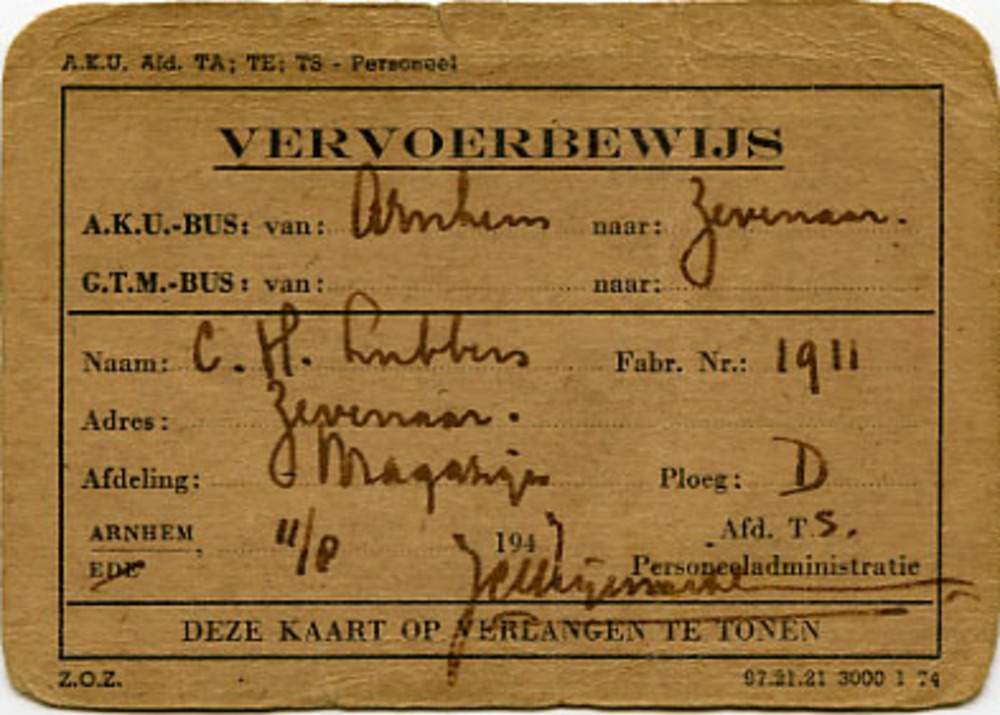 A.K.U. Afd. TA; TE; TS - Personeel
VERVOERBEWIJS
A.K.U.-BUS: van: Arnhem naar: Zevenaar.
G.T.M.-BUS: van: naar:
Naam: C. H. Lubbers Fabr. Nr.: 1911
Adres: Zevenaar.
Afdeling: Magazijn Ploeg: D
ARNHEM 11/8 1947 Afd. T.S.
EDE Personeeladministratie
DEZE KAART OP VERLANGEN TE TONEN
Z.O.Z. 97.21.21 3000 1 74